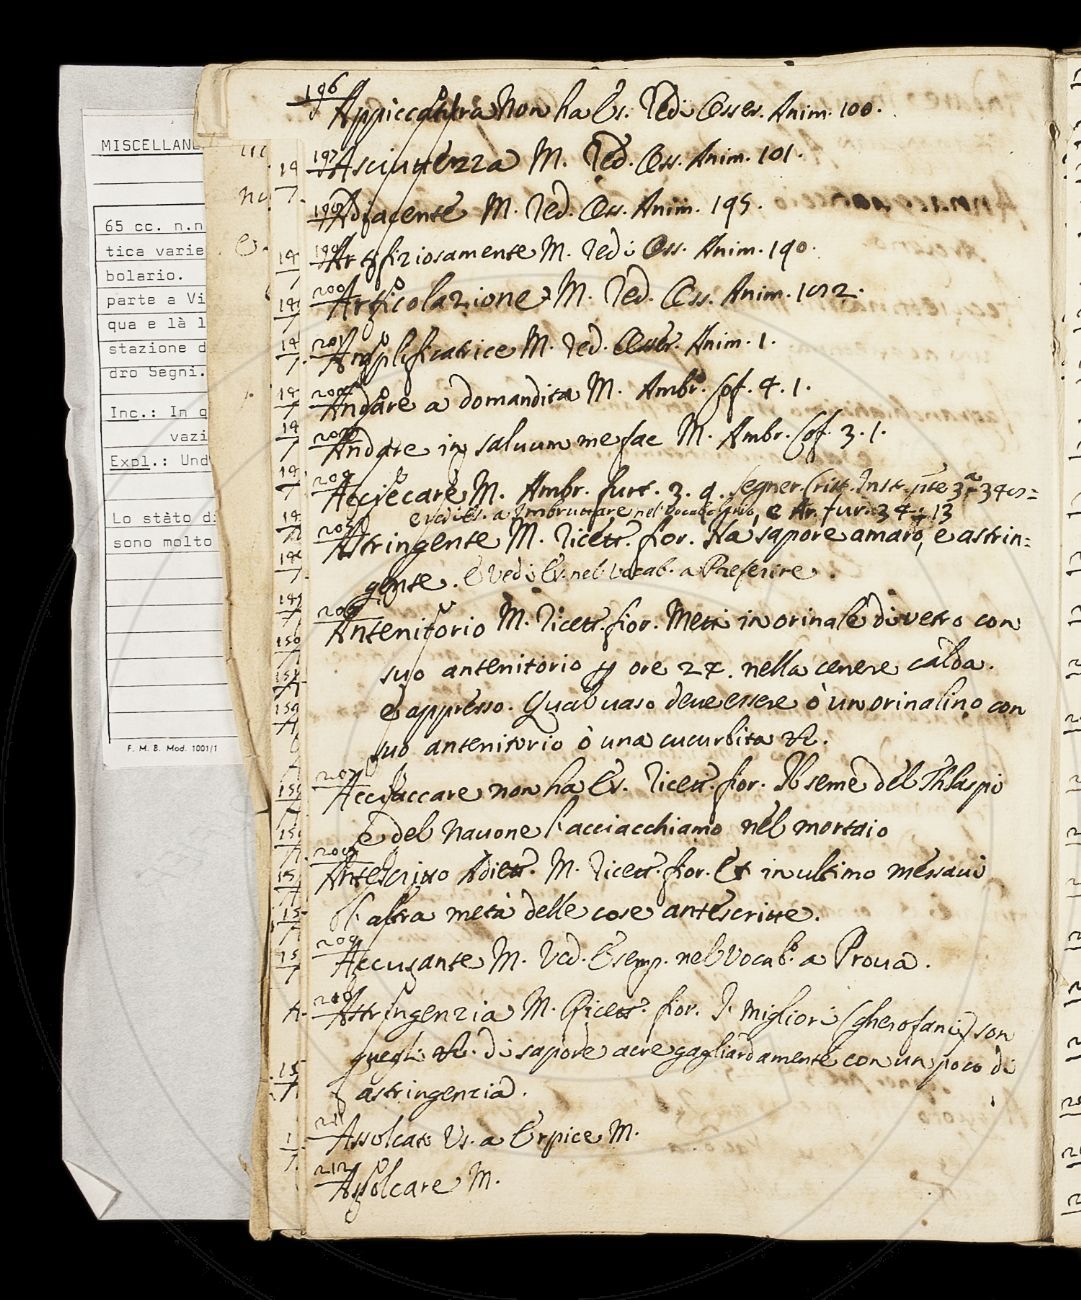 MISCELLAN
65 cc. n.n
tica varie
bolario.
parte a Vi
qua e là l
stazione d
dro Segni.
Inc.: In q
vazi
Expl.: Und
Lo stàto di
sono molto
F. M. B. Mod. 1001/1
196 Appiccatura Non ha Es. Redi Osser. Anim. 100.
197 Asciuttezza M. Red. Oss. Anim. 101.
198 Adiacente M. Red. Oss. Anim. 195.
199 Artifiziosamente M. Redi Oss. Anim. 190.
200 Articolazione M. Red. Oss. Anim. 102.
201 Amplificatrice M. Red. Anim. 1.
202 Andare a domandita M. Ambr. Cof. 4. 1.
203 Andare in saluum me fac M. Ambr. Cof. 3. 1.
204 Accecare M. Ambr. furt. 3. 9. Segner. Crist. Inst.
e vedi Es. a Imbruttare nel vocabolario, e Ar. fur. 34. 13
205 Astringente M. Ricett. fior. Ha sapore amaro, e astrin=
gente. E vedi Es. nel Vocab. a Preferire.
206 Antenitorio M. Ricett. fior. Metti in orinale di vetro con
suo antenitorio p ore 24. nella cenere calda.
e appresso. Qual uaso deue essere ò un orinalino con
suo antenitorio ò una cucurbita &c.
207 Acciaccare non ha Es. Ricett. fior. Il seme del Thlaspi
e del Nauone l'acciacchiamo nel mortaio
208 Antescritto Adiett. M. Ricett. fior. Et in ultimo messaui
l'altra metà delle cose antescritte.
209 Accusante M. Ved. Esemp. nel Vocab.º a Proua.
210 Astringenzia M. Ricett. fior. I migliori (gherofani) son
quegli &c. di sapore acre gagliardamente con un poco di
astringenzia.
211 Assolcato Vs. a Erpice M.
212 Assolcare M.